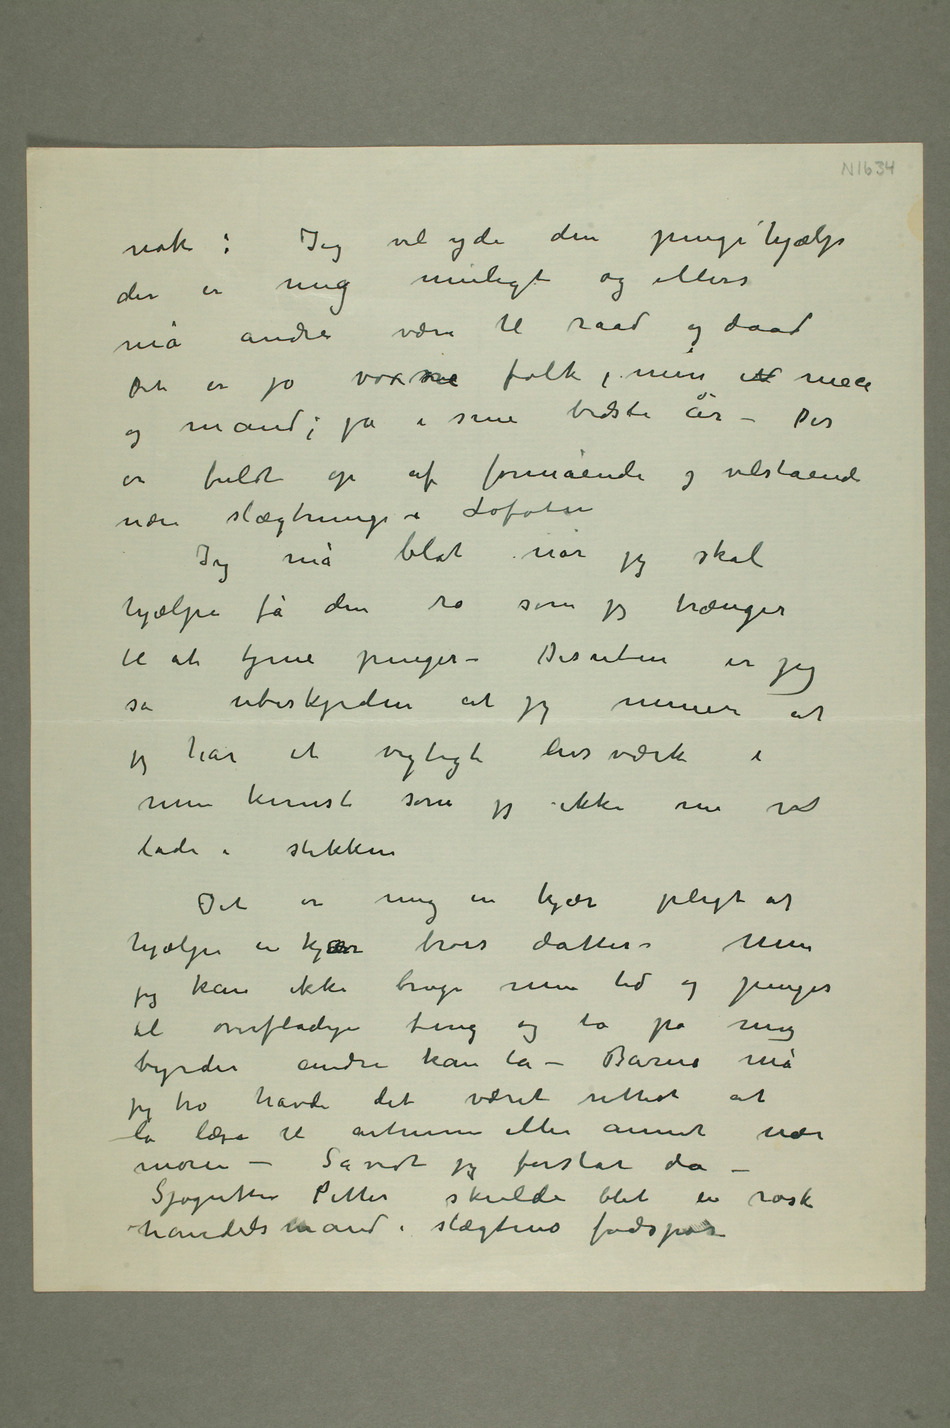 N1634
nok : Jeg vil yde den pengehjælp
der er mig muligt og ellers
må andre være til raad og daad
Det er jo voxne folk, men
og mand; ja i sine bedste år – Der
er fuldt op af formående og velstaaende
nære slægtninge i Lofoten
Jeg må blot når jeg skal
hjælpe få den ro som jeg trænger
til at tjene penger – Desuten er jeg
så ubeskjeden at jeg mener at
jeg har et vigtigt livsværk i
min kunst som jeg ikke må
lade i stikken
Det er mig en kjær pligt at
hjælpe en kjær brors datter – Men
jeg kan ikke bruge min tid og penger
til overflødige ting og ta på mig
byrder andre kan ta – Barnet må
jeg tro havde det været rettest at
la læse til artium eller annet nær
moren – Såvidt jeg forstår da –
Sjøgutten Petter skulde blet en rask
handelsmand i slægtens fodspor